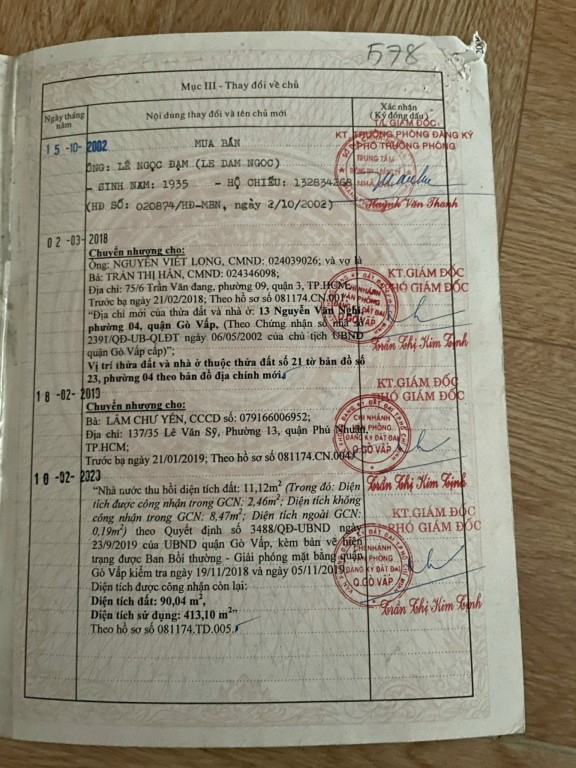 578
Mục III - Thay đổi về chủ
Ngày tháng năm
Nội dung thay đổi và tên chủ mới
Xác nhận (Ký đóng dấu)
15-10-2002
MUA BÁN
ÔNG: LÊ NGỌC ĐẠM (LE DAM NGOC)
- SINH NĂM: 1935 - HỘ CHIẾU: 132834268
(HĐ SỐ: 020874/HĐ-MBN, ngày 2/10/2002)
T/L GIÁM ĐỐC
KT. TRƯỞNG PHÒNG ĐĂNG KÝ
PHÓ TRƯỞNG PHÒNG
TRUNG TÂM
Huỳnh Văn Thanh
02-03-2018
Chuyển nhượng cho:
Ông: NGUYỄN VIẾT LONG, CMND: 024039026; và vợ là
Bà: TRẦN THỊ HÂN, CMND: 024346098;
Địa chỉ: 75/6 Trần Văn đang, phường 09, quận 3, TP.HCM
Trước bạ ngày 21/02/2018; Theo hồ sơ số 081174.CN.001
"Địa chỉ mới của thửa đất và nhà ở: 13 Nguyễn Văn Nghi,
phường 04, quận Gò Vấp, (Theo Chứng nhận số nhà số
2391/QĐ-UB-QLĐT ngày 06/05/2002 của chủ tịch UBND
quận Gò Vấp cấp)";
Vị trí thửa đất và nhà ở thuộc thửa đất số 21 tờ bản đồ số
23, phường 04 theo bản đồ địa chính mới.
KT.GIÁM ĐỐC
PHÓ GIÁM ĐỐC
CHI NHÁNH
VĂN PHÒNG
ĐĂNG KÝ ĐẤT ĐAI
Q.GÒ VẤP
Trần Thị Kim Định
18-02-2019
Chuyển nhượng cho:
Bà: LÂM CHƯ YẾN, CCCD số: 079166006952;
Địa chỉ: 137/35 Lê Văn Sỹ, Phường 13, quận Phú Nhuận,
TP.HCM;
Trước bạ ngày 21/01/2019; Theo hồ sơ số 081174.CN.004
KT.GIÁM ĐỐC
PHÓ GIÁM ĐỐC
CHI NHÁNH
VĂN PHÒNG
ĐĂNG KÝ ĐẤT ĐAI
Q.GÒ VẤP
Trần Thị Kim Định
10-02-2020
"Nhà nước thu hồi diện tích đất: 11,12m² (Trong đó: Diện
tích được công nhận trong GCN: 2,46m²; Diện tích không
công nhận trong GCN: 8,47m²; Diện tích ngoài GCN:
0,19m²) theo Quyết định số 3488/QĐ-UBND ngày
23/9/2019 của UBND quận Gò Vấp, kèm bản vẽ hiện
trạng được Ban Bồi thường - Giải phóng mặt bằng quận
Gò Vấp kiểm tra ngày 19/11/2018 và ngày 05/11/2019
Diện tích được công nhận còn lại:
Diện tích đất: 90,04 m²,
Diện tích sử dụng: 413,10 m²"
Theo hồ sơ số 081174.TD.005.
KT.GIÁM ĐỐC
PHÓ GIÁM ĐỐC
CHI NHÁNH
VĂN PHÒNG
ĐĂNG KÝ ĐẤT ĐAI
Q.GÒ VẤP
Trần Thị Kim Định